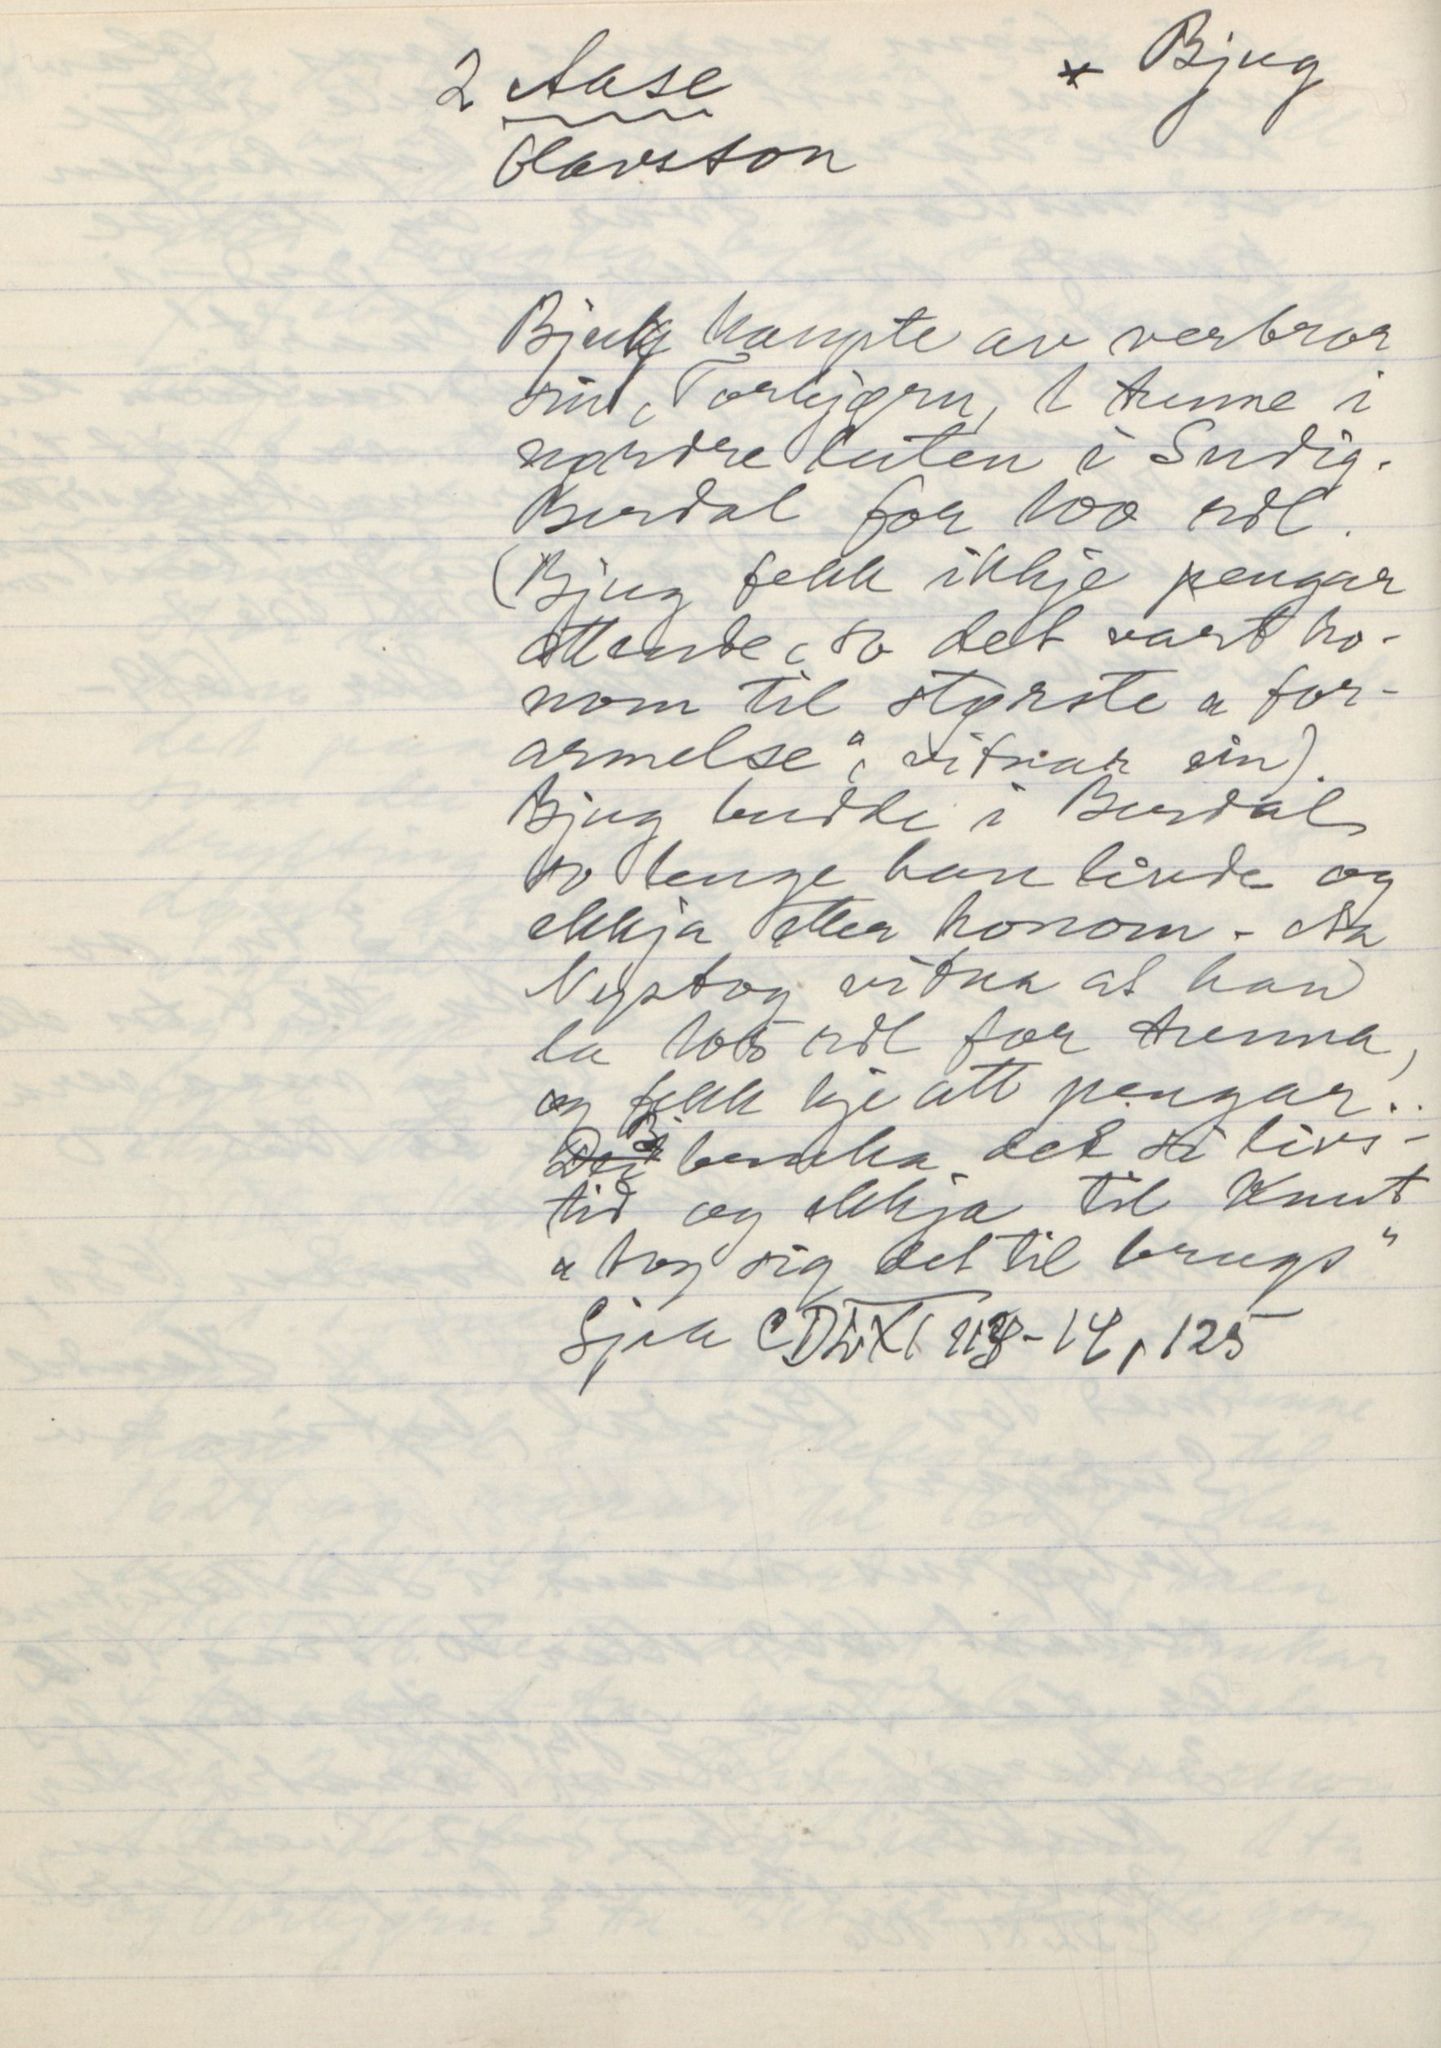 2 Aase * Bjug
Olavsson
Bjug kaupte av verbror
sin, Torbjørn, 1 tunne i
nørdre luten i Sudig.
Burdal for 100 rdl.
(Bjug fekk ikkje pengar
attende, so det vart ho-
nom til største "for-
armelse", vitnar ein).
Bjug budde i Burdal
so lenge han livde og
ekkja etter honom - Aa
Nystog vitna at han
la 105 rdl for tunna,
og fekk kje att pengar..
bruka det si livs-
tid og ekkja til Knut
"tog sig det til brugs"
Sjaa 113-14, 125